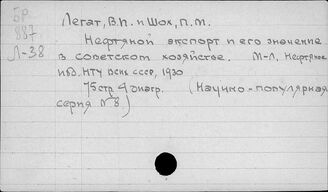 БР
887
Л-38
Легат, В.П. и Шох, П.М.
Нефтяной экспорт и его значение
в советском хозяйстве. М-Л, Нефтяное
изд. НТУ ВСНХ СССР, 1930
75 стр. 4 диагр. (Научно-популярная
серия №8)